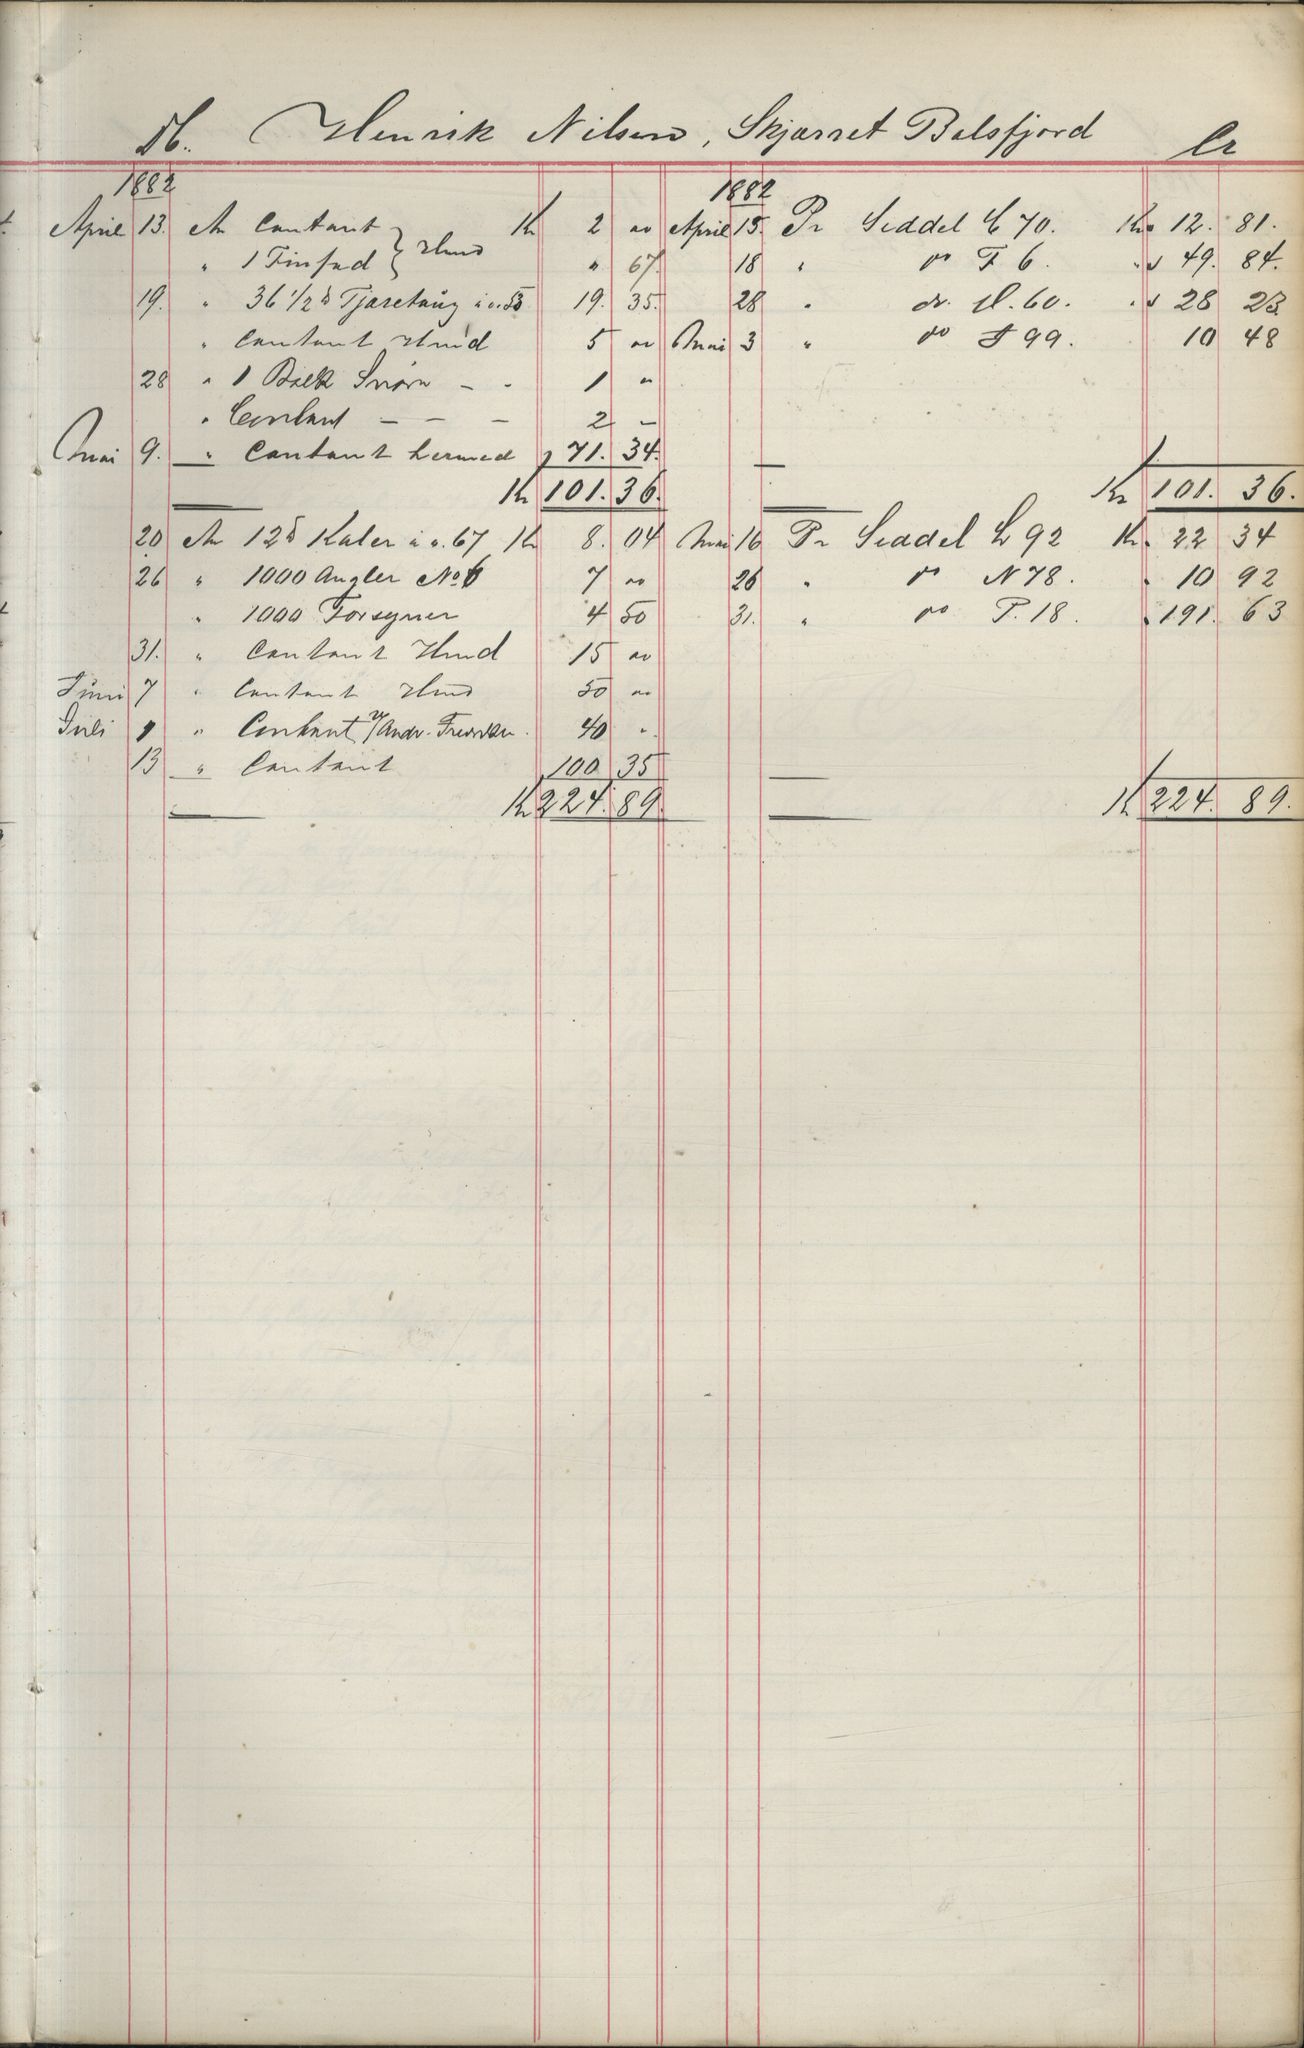 Db. Henrik Nilsen, Skjæret Balsfjord Cr
1882 1882
April 13. An Contant Kr 2 " April 15. Pr Seddel E 70. Kr 12. 81.
" 1 Tinfad Hmd " 67. 18 " do F 6. " 49. 84.
19. " 36 1/2 ℔ Tjæretaug à o. 53 19. 35. 28 " do H. 60. " 28 23.
" Contant Hmd 5 " Mai 3 " do J 99. 10 48
28 " 1 Bælk Snøre - - 1 "
" Contant - - - 2 -
Mai 9. " Contant hermed 71. 34.
Kr 101. 36. Kr 101. 36.
20 An 12 ℔ Kaler à o. 67 Kr 8. 04 Mai 16 Pr Seddel L 92 Kr. 22 34
26 " 1000 Angler No 6 7 " 26 " do N 78. " 10 92
" 1000 Forsyner 4 50 31. " do P. 18. " 191. 63
31. " Contant Hmd 15 "
Juni 7 " Contant Hmd 50 "
Juli 1 " Contant v/ Andr. 40 "
13 " Contant 100 35
Kr 224. 89. Kr 224. 89.